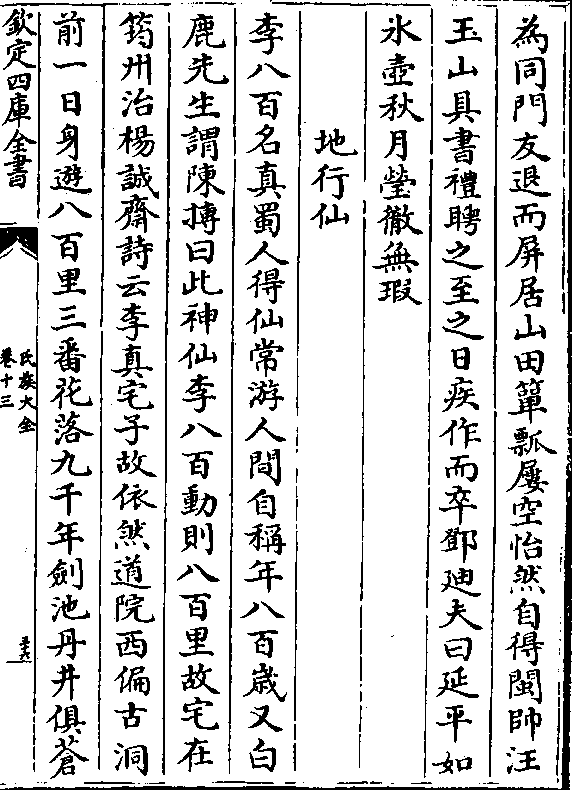 為同門友退而屏居山田簞瓢屢空怡然自得閩帥汪
玉山具書禮聘之至之日疾作而卒鄧迪夫曰延平如
氷壺秋月瑩徹無瑕
地行仙
李八百名真蜀人得仙常游人間自稱年八百歲又白
鹿先生謂陳摶曰此神仙李八百動則八百里故宅在
筠州治楊誠齋詩云李真宅子故依然道院西偏古洞
前一日身遊八百里三番花落九千年劍池丹井俱蒼
欽定四庫全書
氏族大全
卷十三